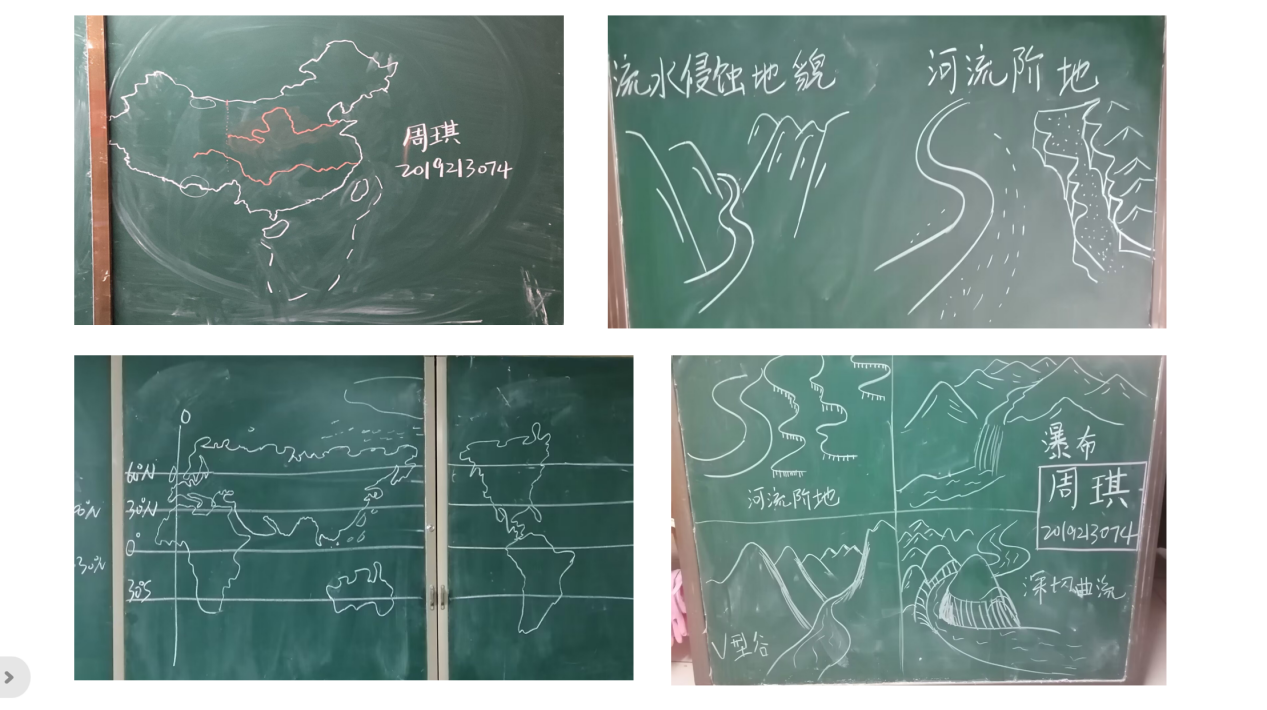 周琪
2019213074
流水侵蚀地貌
河流阶地
0
60°N
30°N
0°
30°S
30°N
河流阶地
瀑布
周琪
2019213074
V型谷
深切曲流